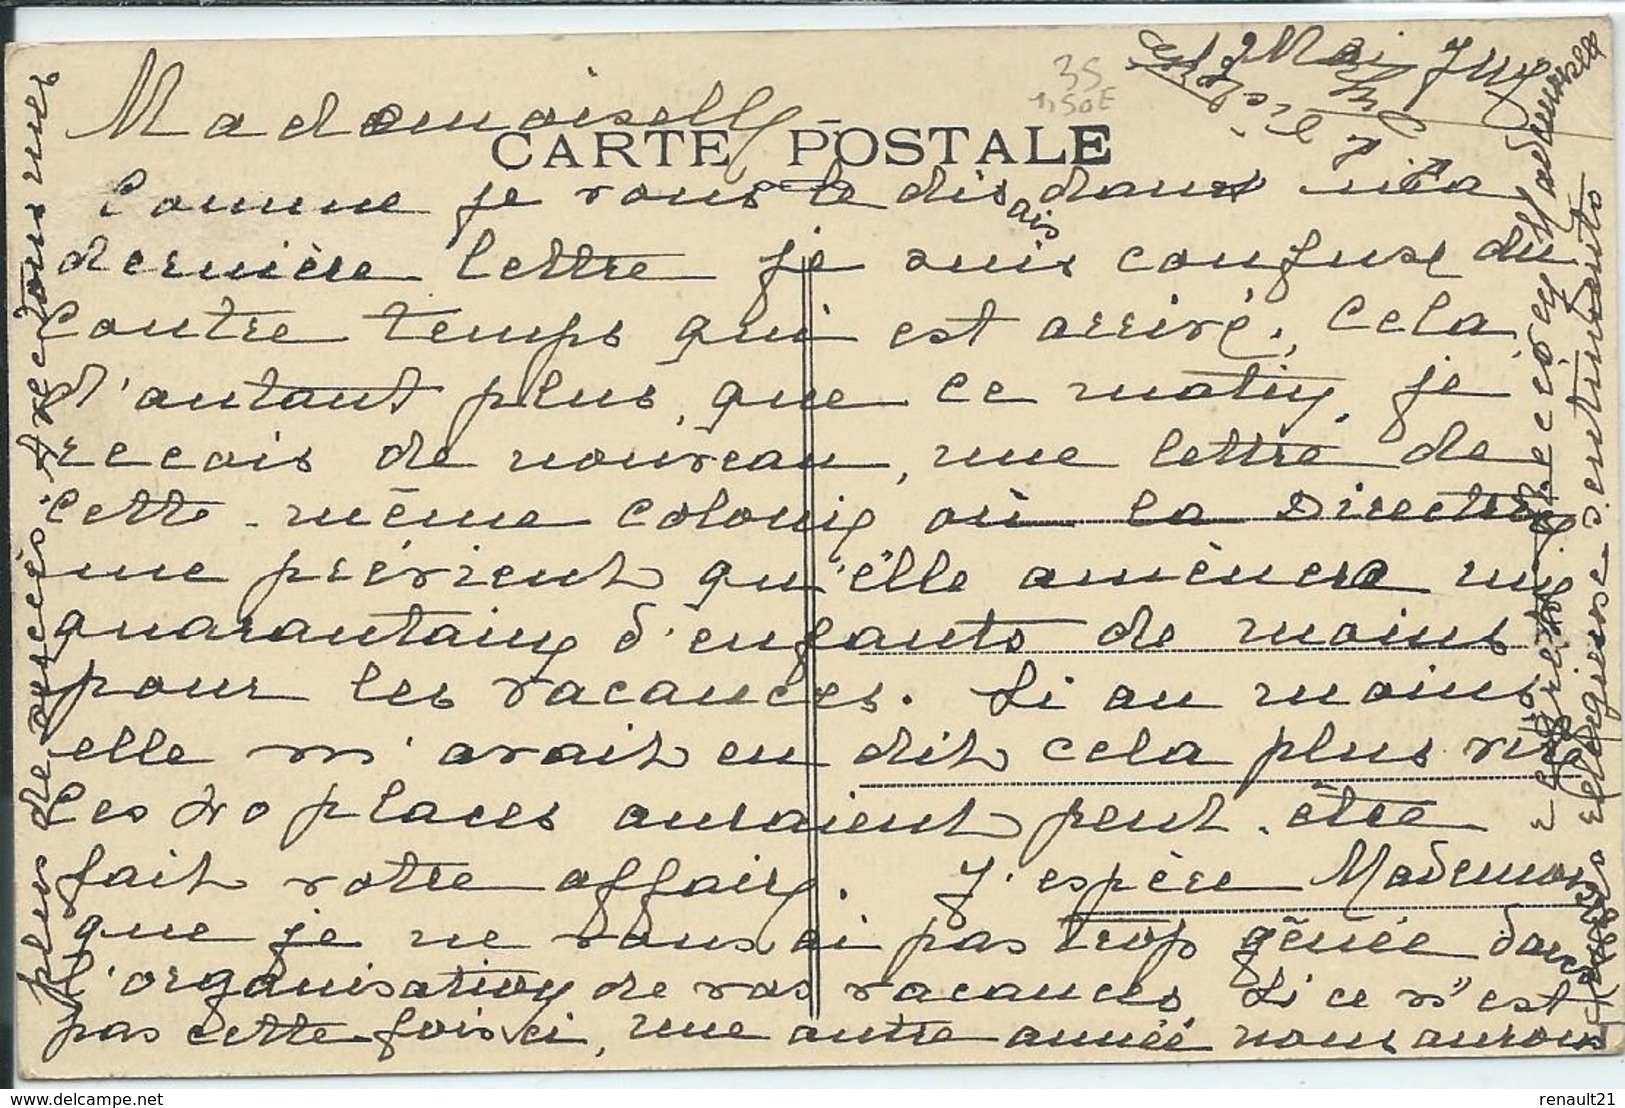 35
1,50E
Mademoiselle
CARTE POSTALE
Comme je vous le disais dans ma
dernière lettre je suis confuse du
contre temps qui est arrivé, Cela
d'autant plus, que ce matin, je
recois de nouveau, une lettre de
cette même colonie où la Directrice
me prévient qu'elle amènera une
quarantaine d'enfants de moins
pour les vacances. Si au moins
elle m'avait en dit cela plus tôt
les 20 places auraient peut-être
fait votre affaire. J'espère Mademoiselle
que je ne vous ai pas trop gênée dans
l'organisation de vos vacances, Si ce n'est
pas cette fois ci, une autre année nous aurons
plus de succès. Avec tous mes
regrets recevez Mademoiselle
religieuse sentiments
delcampe.net
renault21